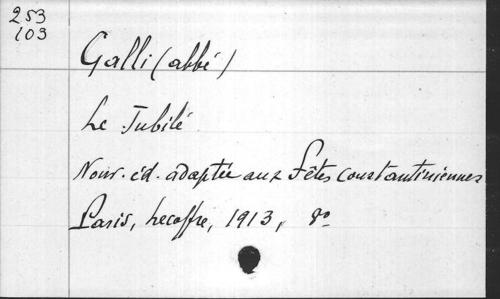 253
103
Galli (abbé)
Le Jubilé
Nouv. éd. adaptée aux Fêtes constantiniennes
Paris, Lecoffre, 1913, 8º